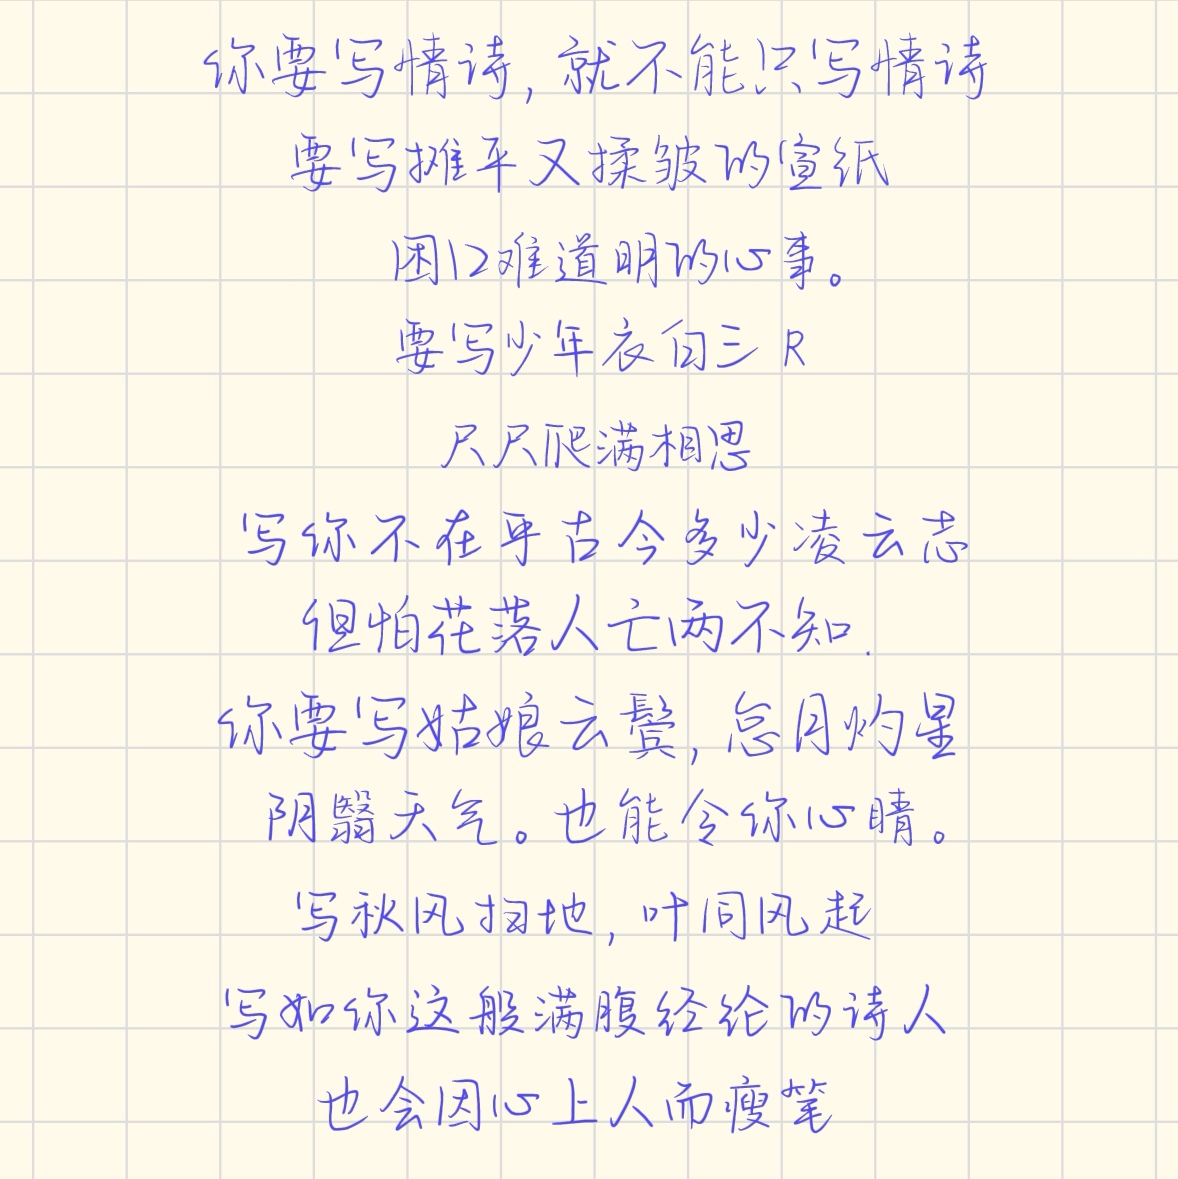 你要写情诗，就不能只写情诗
要写摊平又揉皱的宣纸
困口难道明的心事。
要写少年衣白三尺
尺尺爬满相思
写你不在乎古今多少凌云志
但怕花落人亡两不知.
你要写姑娘云鬓，总月灼星
阴翳天气。也能令你心晴。
写秋风扫地，叶间风起
写如你这般满腹经纶的诗人
也会因心上人而瘦笔